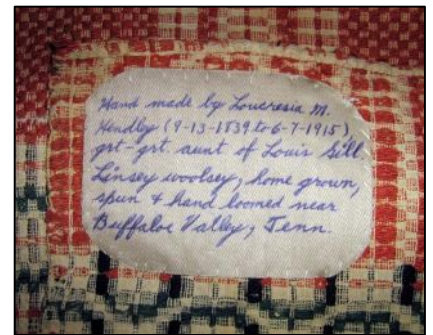 Hand made by Loucresia M.
Hendley (9-13-1839 to 6-7-1915)
grt-grt. aunt of Louis Gill.
Linsey woolsey, home grown,
spun & hand loomed near
Buffaloe Valley, Tenn.